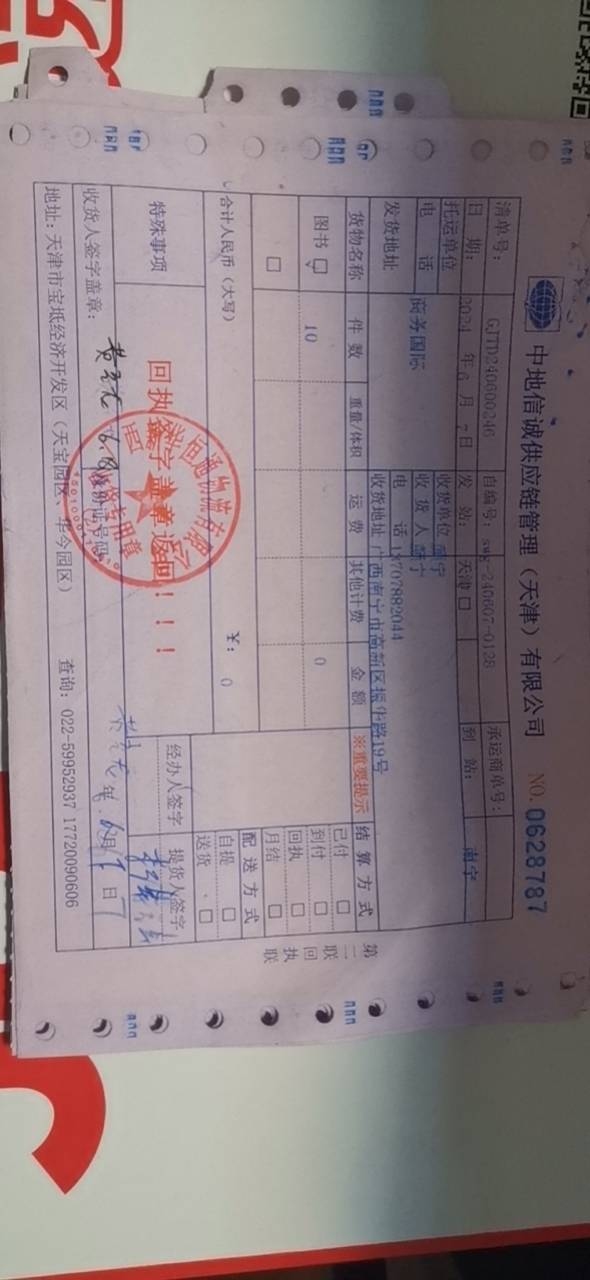 中地信诚供应链管理（天津）有限公司 NO. 0628787
清单号： GJTD240600246 自编号：swg-240607-0128 承运商单号：
日 期： 2024 年 6 月 7 日 发 站： 天津 □ 到 站： 南宁
托运单位 收货单位 南宁
电 话 收 货 人 南宁
发货地址 商务国际 电 话 13707882044
收货地址 广西南宁市高新区振华路19号
货物名称 件 数 重量/体积 运 费 其他计费 金 额 ※重要提示 结 算 方 式
图书 ☑ 10 0
□
已付 □
到付 □
回执 □
月结 □
合计人民币（大写） ￥： 0
配 送 方 式
自提 □
送货 □
特殊事项 回执签字盖章返回！！！
经办人签字 提货人签字
收货人签字盖章： 6.8 身份证号码 年 6月 日
地址：天津市宝坻经济开发区（天宝园区、华今园区） 查询：022-59952937 17720090606
第二联 回执联